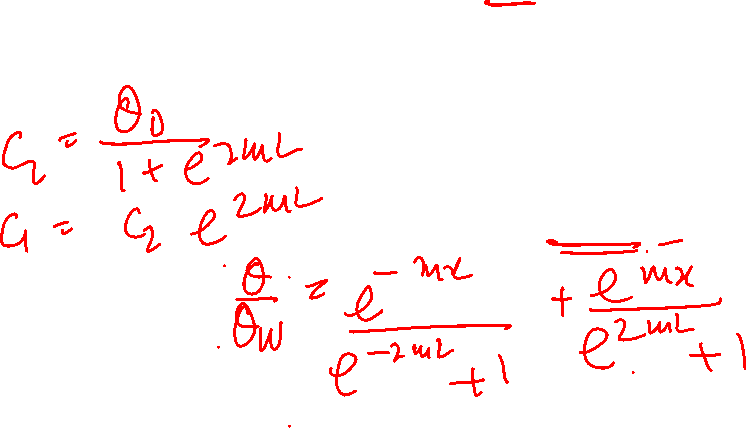 C₂ = θ₀ / (1 + e^{2mL})
C₁ = C₂ e^{2mL}
θ/θ_W = e^{-mx} / (e^{-2mL} + 1) + e^{mx} / (e^{2mL} + 1)